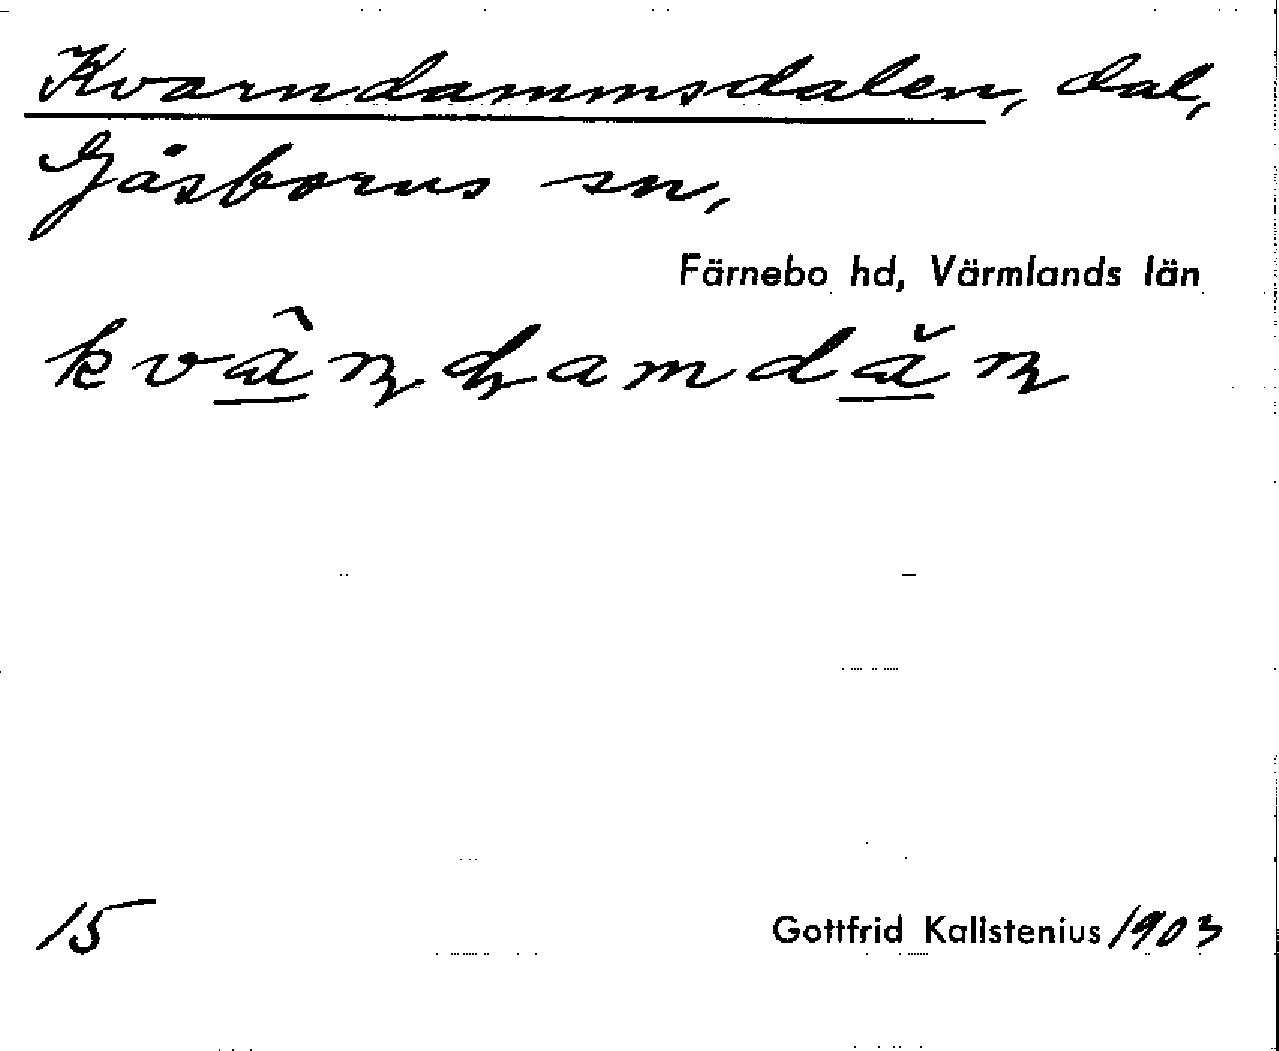 Kvarndammsdalen, dal,
Gåsborns sn,
Färnebo hd, Värmlands län
kvâ̱ɳɖamdă̱ɳ
15
Gottfrid Kallstenius 1903